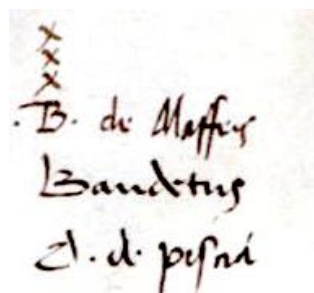 x
x
x
. B. de Maffeis
Baudetus
A. d. piscia